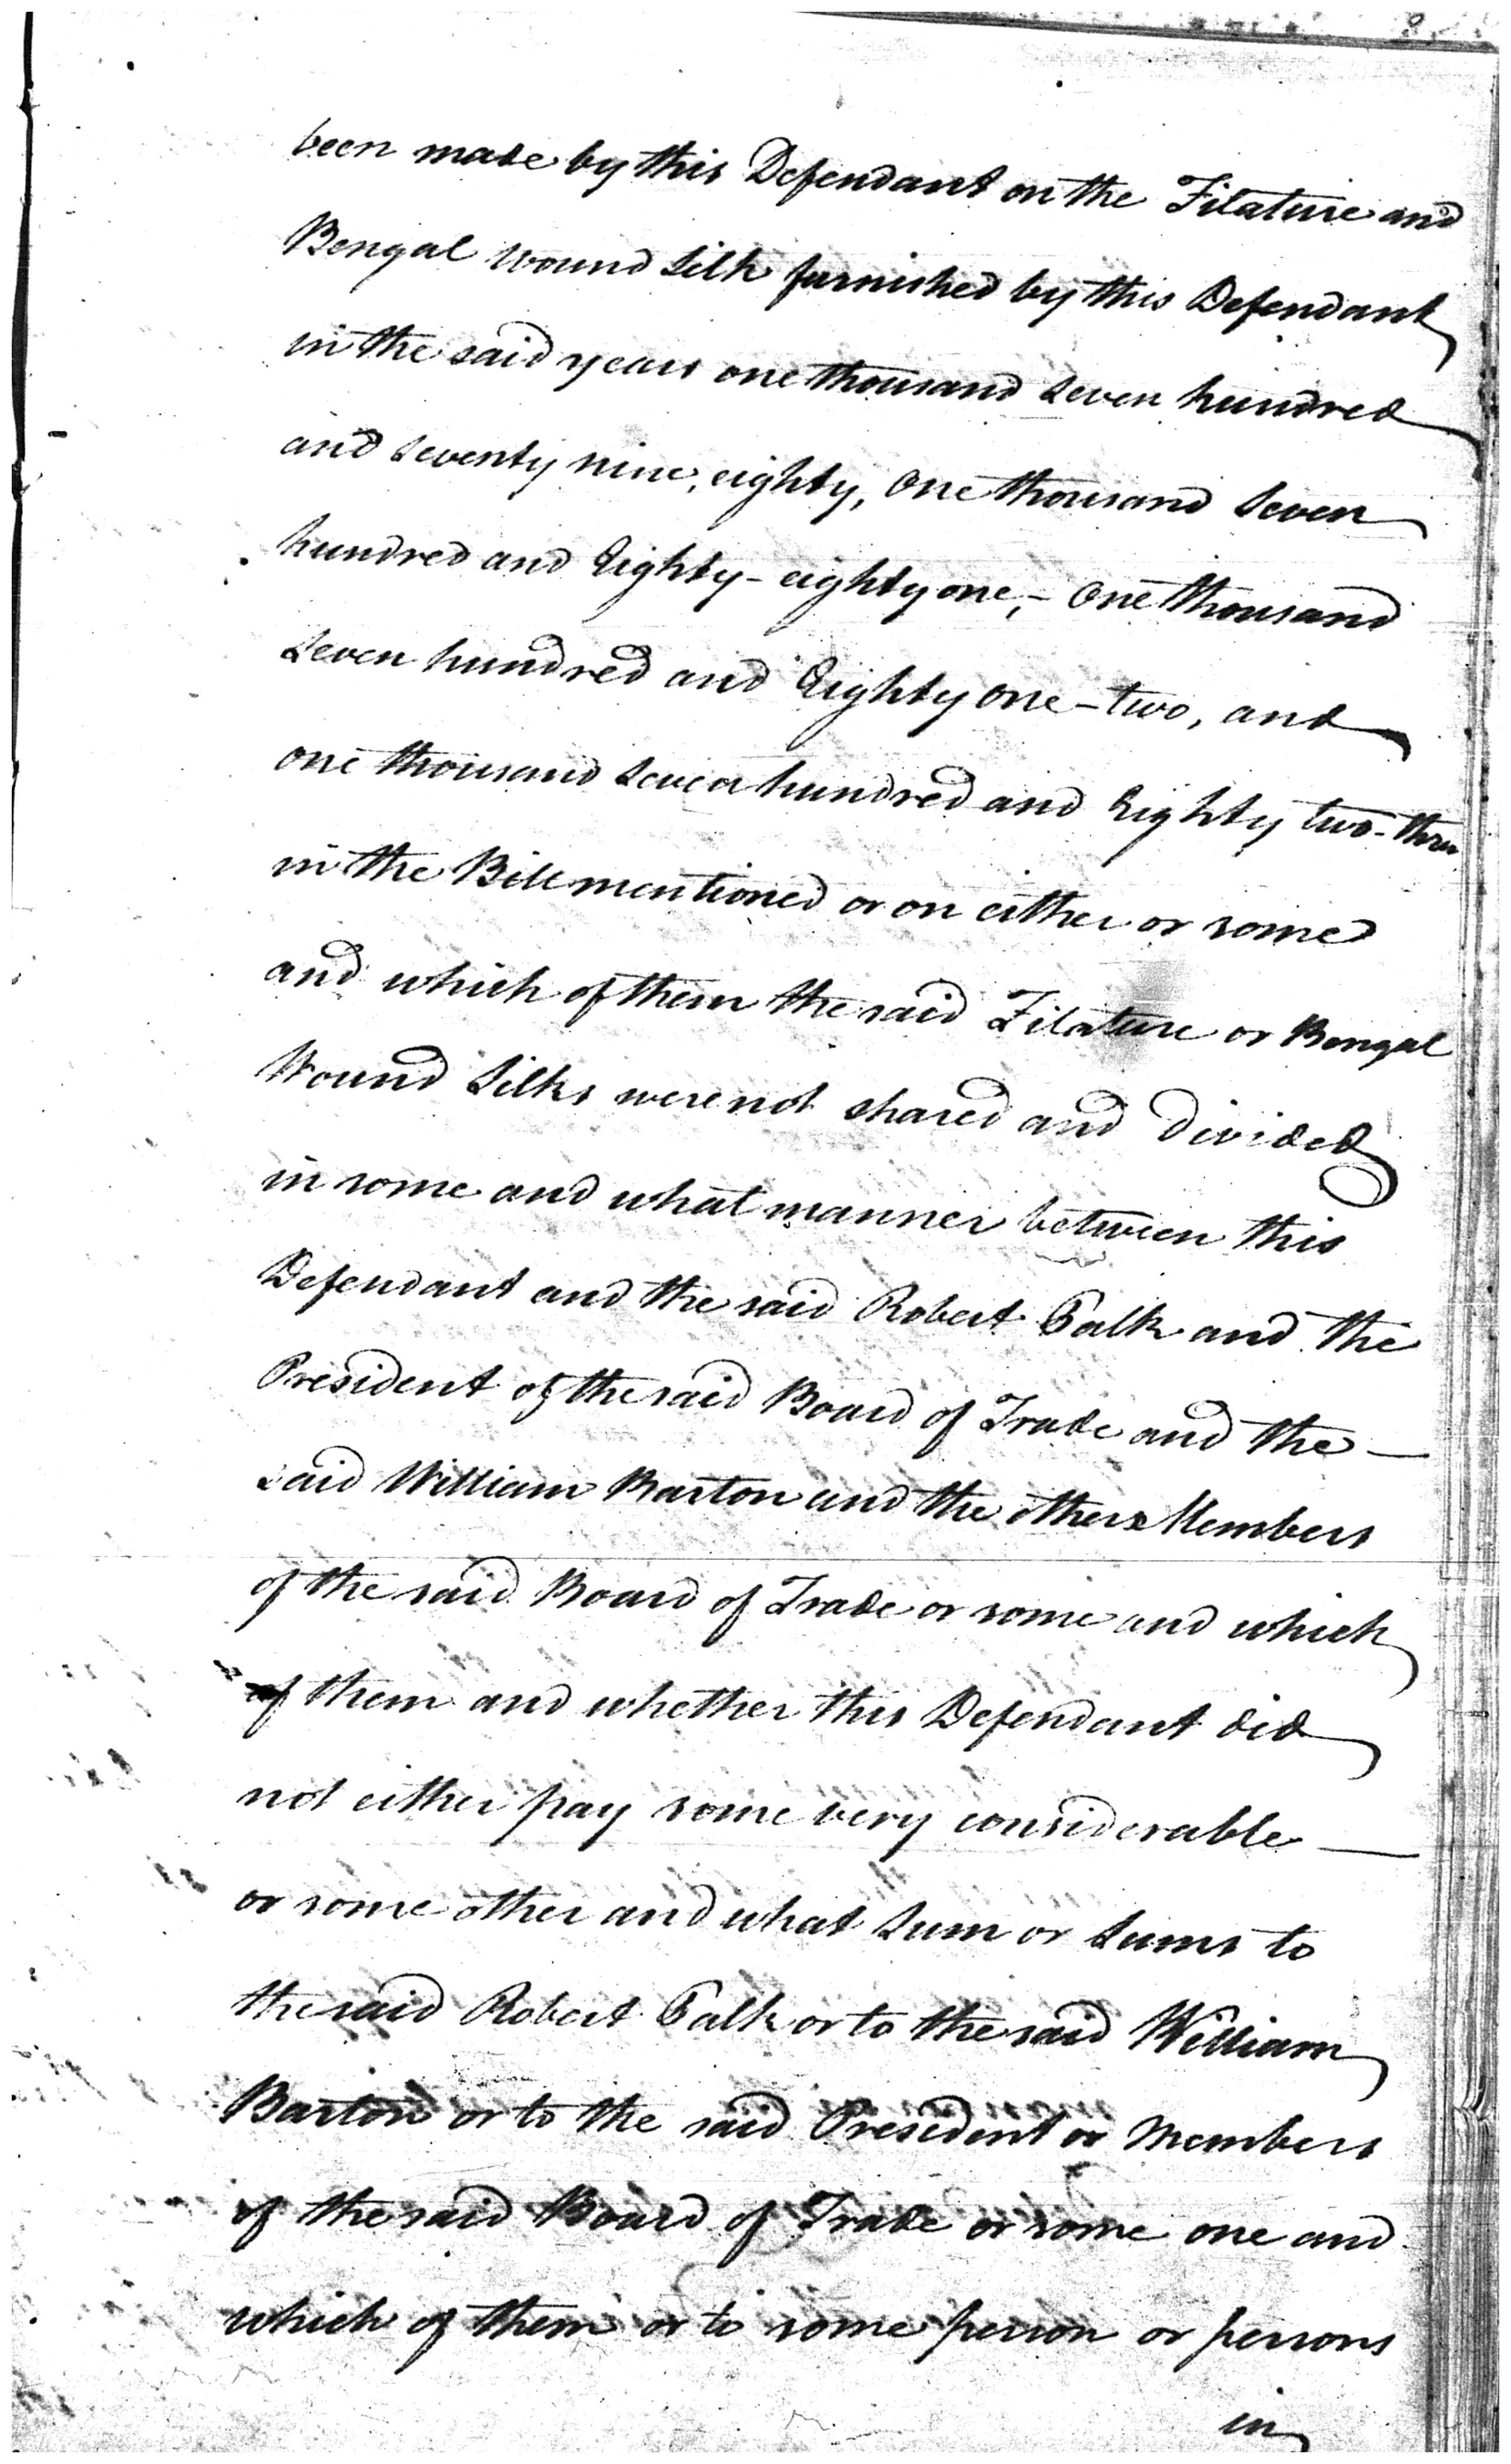 been made by this Defendant on the Filature and
Bengal wound Silk furnished by this Defendant
in the said years one thousand seven hundred
and seventy nine, eighty, One thousand Seven
hundred and Eighty - eighty one, - One thousand
Seven hundred and Eighty one - two, and
one thousand seven hundred and Eighty two - three
in the Bill mentioned or on either or some
and which of them the said Filature or Bengal
Wound Silks were not shared and divided
in some and what manner between this
Defendant and the said Robert Palk and the
President of the said Board of Trade and the -
said William Barton and the others Members
of the said Board of Trade or some and which
of them and whether this Defendant did
not either pay some very considerable -
or some other and what Sum or Sums to
the said Robert Palk or to the said William
Barton or to the said President or Members
of the said Board of Trade or some one and
which of them or to some person or persons
in